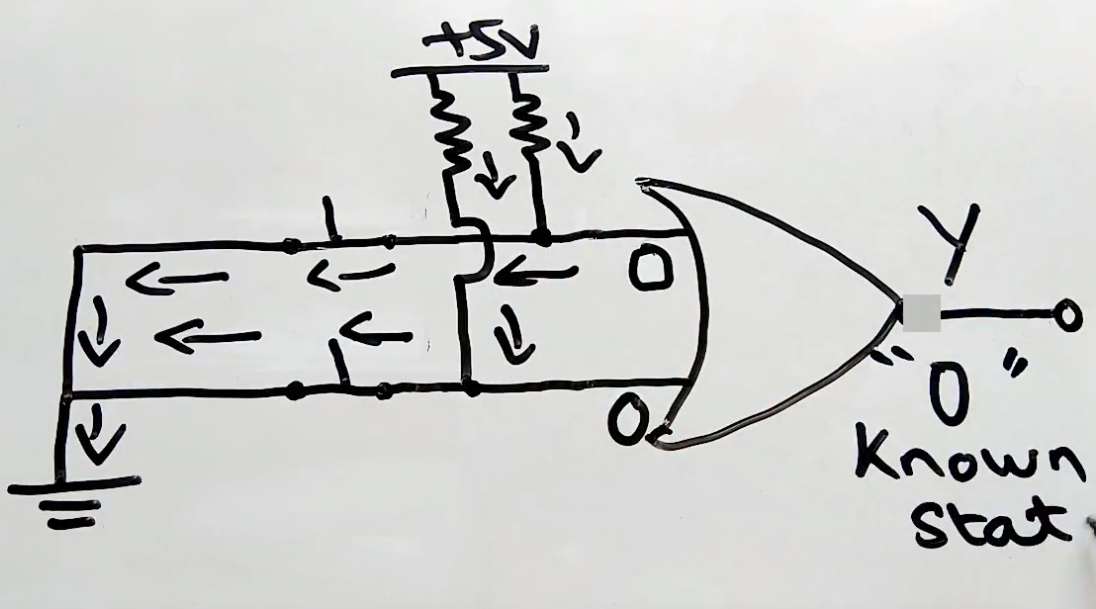 +5V
Y
0
0
"0"
Known
Stat